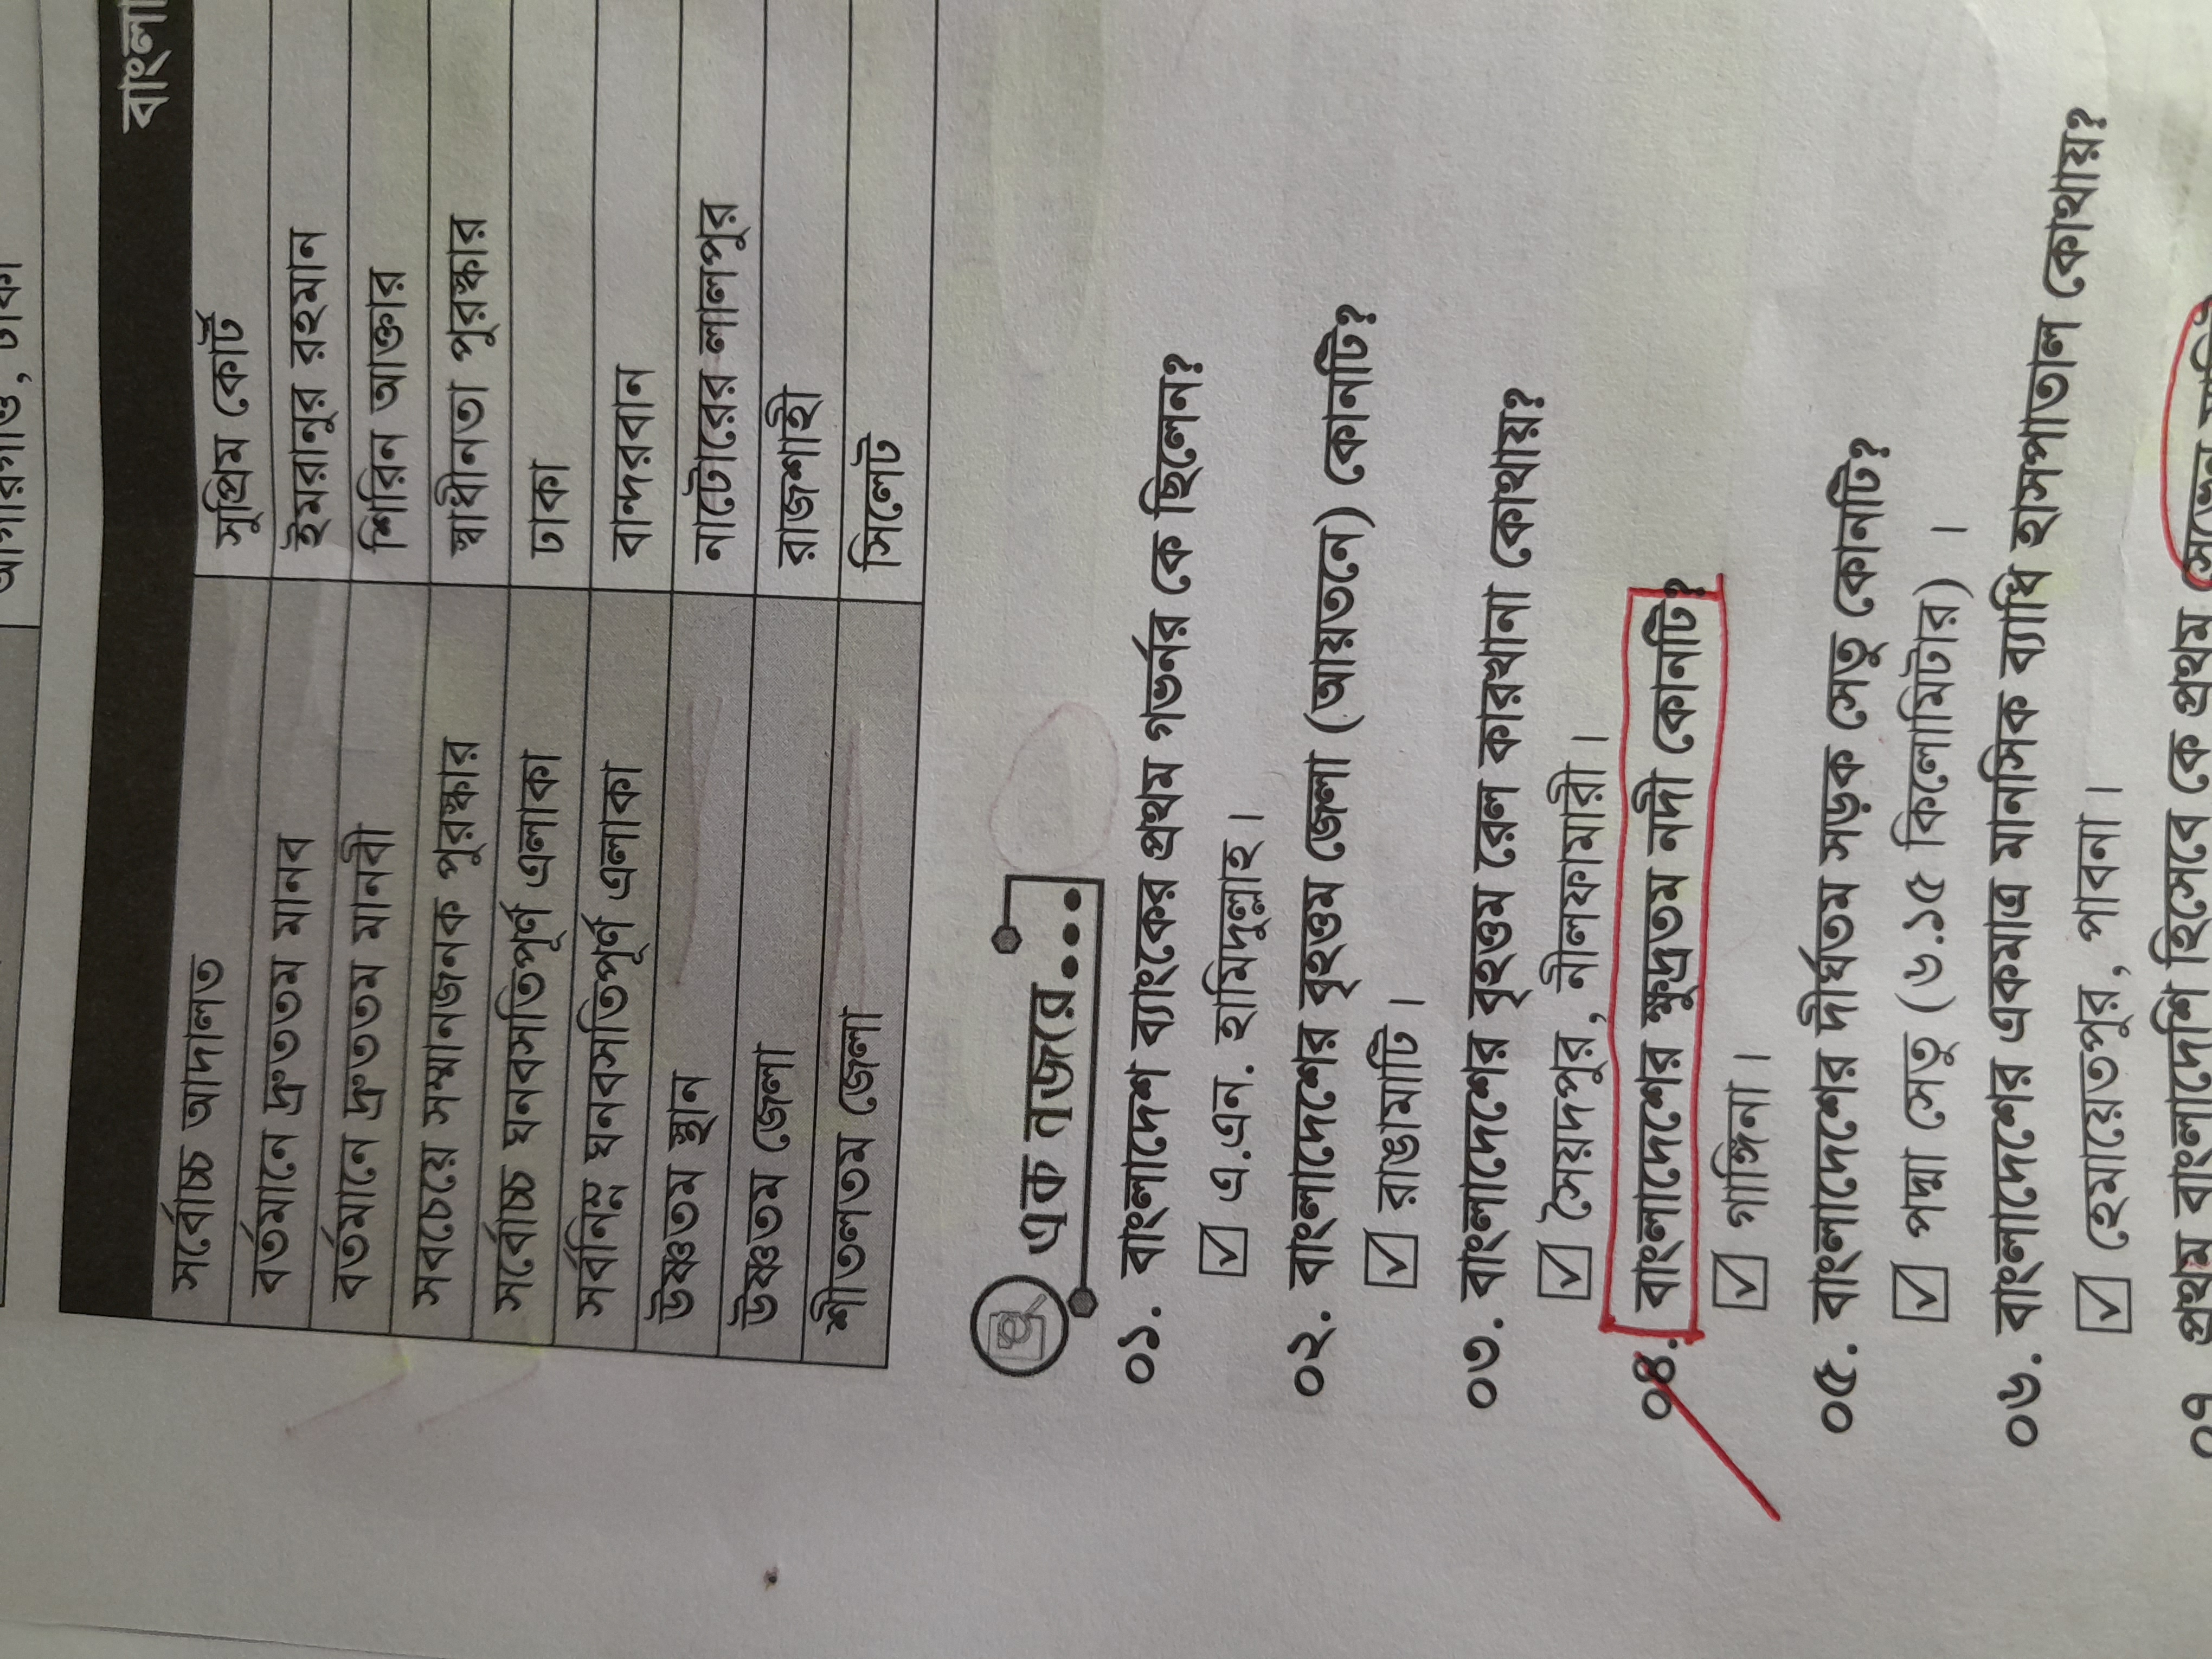 আগারগাঁও, ঢাকা
বাংলা
সর্বোচ্চ আদালত সুপ্রিম কোর্ট
বর্তমানে দ্রুততম মানব ইমরানুর রহমান
বর্তমানে দ্রুততম মানবী শিরিন আক্তার
সবচেয়ে সম্মানজনক পুরস্কার স্বাধীনতা পুরস্কার
সর্বোচ্চ ঘনবসতিপূর্ণ এলাকা ঢাকা
সর্বনিম্ন ঘনবসতিপূর্ণ এলাকা বান্দরবান
উষ্ণতম স্থান নাটোরের লালপুর
উষ্ণতম জেলা রাজশাহী
শীতলতম জেলা সিলেট
এক নজরে...
০১. বাংলাদেশ ব্যাংকের প্রথম গভর্নর কে ছিলেন?
এ.এন. হামিদুল্লাহ।
০২. বাংলাদেশের বৃহত্তম জেলা (আয়তনে) কোনটি?
রাঙামাটি।
০৩. বাংলাদেশের বৃহত্তম রেল কারখানা কোথায়?
সৈয়দপুর, নীলফামারী।
০৪. বাংলাদেশের ক্ষুদ্রতম নদী কোনটি?
গাঙ্গিনা।
০৫. বাংলাদেশের দীর্ঘতম সড়ক সেতু কোনটি?
পদ্মা সেতু (৬.১৫ কিলোমিটার)।
০৬. বাংলাদেশের একমাত্র মানসিক ব্যাধি হাসপাতাল কোথায়?
হেমায়েতপুর, পাবনা।
০৭. প্রথম বাংলাদেশি হিসেবে কে প্রথম